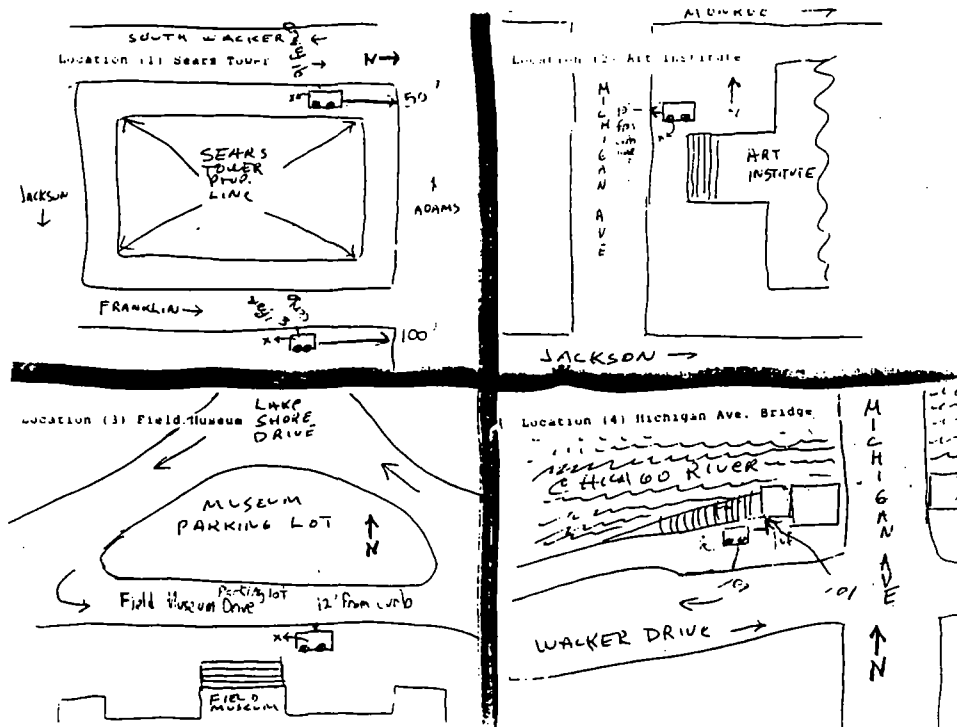 SOUTH WACKER
Location (1) Sears Tower
N
50'
SEARS
TOWER
PROP.
LINE
JACKSON
ADAMS
FRANKLIN
x
100'
MONROE
Location (2) Art Institute
MICHIGAN AVE
x
ART
INSTITUTE
JACKSON
Location (3) Field Museum
LAKE
SHORE
DRIVE
MUSEUM
PARKING LOT
N
Parking lot
Field Museum Drive
12' from curb
x
FIELD
MUSEUM
Location (4) Michigan Ave. Bridge
CHICAGO RIVER
MICHIGAN AVE
WACKER DRIVE
N